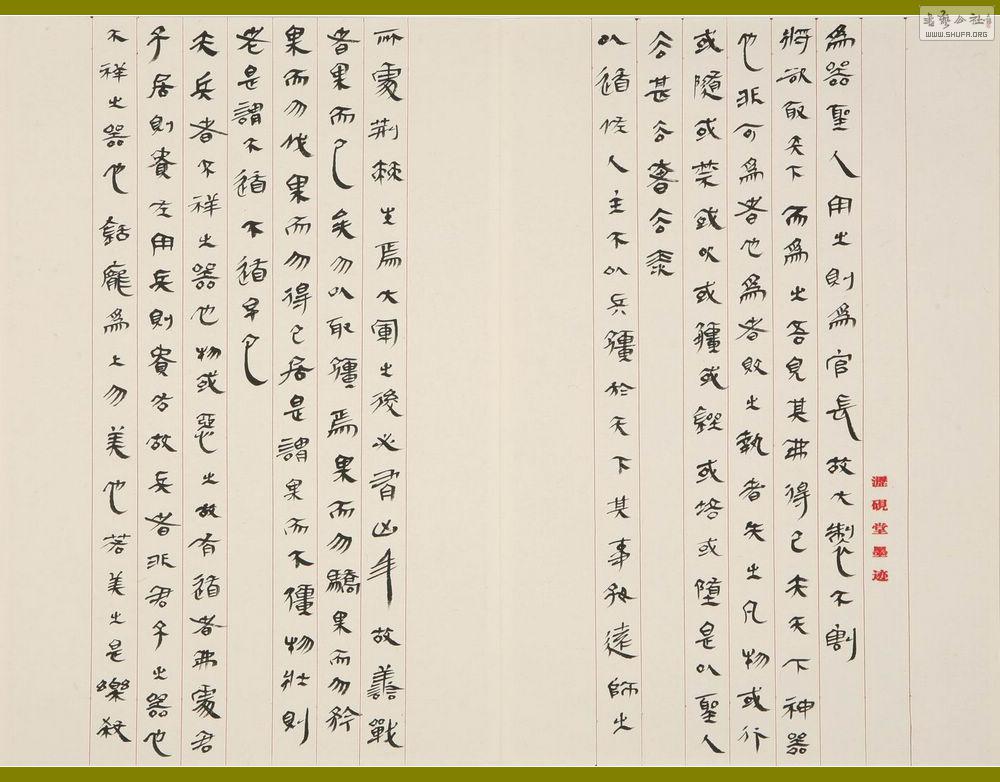 書藝公社
WWW.SHUFA.ORG
瀝硯堂墨迹
為器聖人用之則為官長故大製不割
將欲取天下而為之吾見其弗得已夫天下神器
也非可為者也為者敗之執者失之凡物或行
或隨或或吹或彊或銼或培或墮是以聖人
去甚去奢去泰
以道佐人主不以兵彊於天下其事好還師之
所處荊棘生焉大軍之後必有凶年故善戰
者果而已矣勿以取彊焉果而勿驕果而勿矜
果而勿伐果而勿得已居是謂果而不彊物壯則
老是謂不道不道早已
夫兵者不祥之器也物或惡之故有道者弗處君
子居則貴左用兵則貴右故兵者非君子之器也
不祥之器也銛龐為上勿美也若美之是樂殺